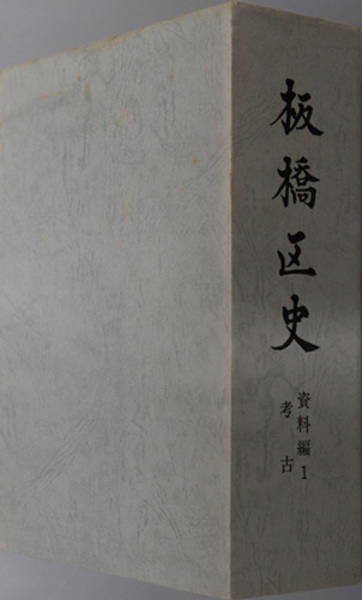 板橋区史
資料編1
考古